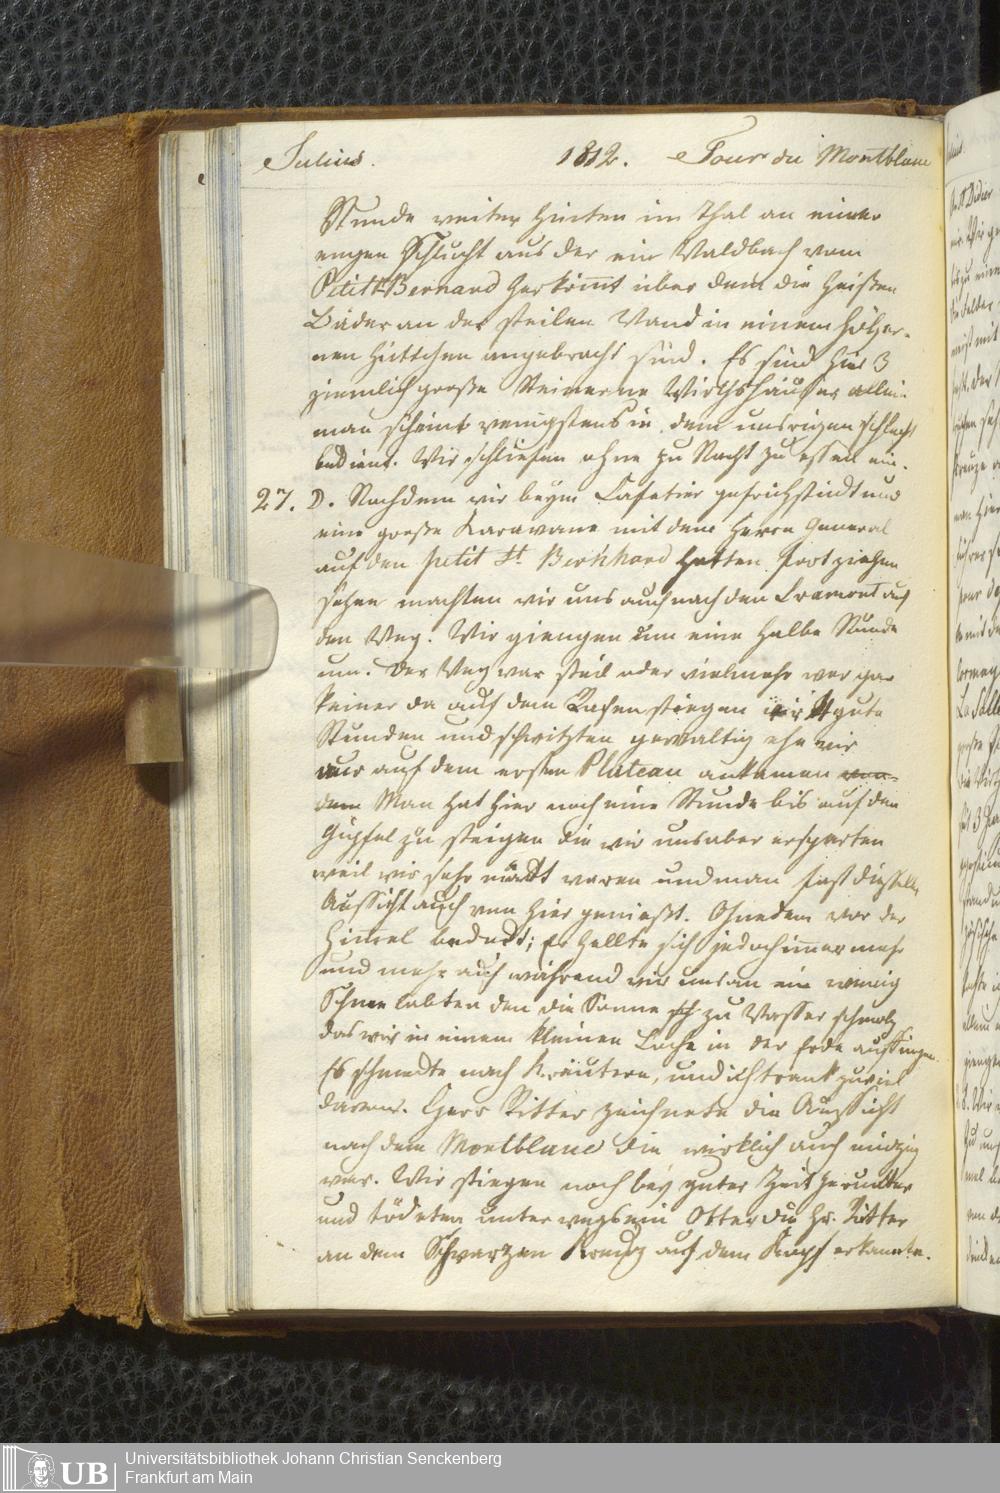 Julius. 1812. Tour du Montblanc
Stunde weiter hinten im Thal an einer
engen Schlucht aus der ein Waldbach vom
Petitt Bernard herkömt über dem die heißen
Bäder an der steilen Wand in einem hölzer-
nen Hüttchen angebracht sind. Es sind hier 3
ziemlich große steinerne Wirthshäuser allein
man scheint wenigstens in dem unsrigen schlecht
bedient. Wir schliefen ohne zu Nacht zu essen ein.
27. D. Nachdem wir beym Cafetier gefrühstückt und
eine große Karavane mit dem Herrn General
auf den petit St Bernhard hatten fortziehen
sehen machten wir uns auch nach den Cramont auf
den Weg. Wir giengen um eine halbe Stunde
um. Der Weg war steil oder vielmehr war gar
keiner da auf dem Rasen stiegen wir 4 gute
Stunden und schwitzten gewaltig ehe wir
nur auf dem ersten Plateau ankamen von
dem Man hat hier noch eine Stunde bis auf den
Güpfel zu steigen die wir uns aber ersparten
weil wir sehr matt waren und man fast dieselbe
Aussicht auch von hier genießt. Ohnedem war der
Himel bedeckt; Er hellte sich jedoch immer mehr
und mehr auf während wir uns an ein wenig
Schnee labten den die Sonne sch zu Wasser schmolz
das wir in einem kleinen Loche in der Erde auffingen.
Es schmeckte nach Kräutern, und ich trank zuviel
davon. Herr Ritter zeichnete die Aussicht
nach dem Montblanc die wirklich auch einzig
war. Wir stiegen noch bey guter Zeit herunter
und tödeten unterwegs ein Otter die Hr. Ritter
an dem Schwarzen Kreuz auf dem Kopf erkannte.
UB Universitätsbibliothek Johann Christian Senckenberg
Frankfurt am Main